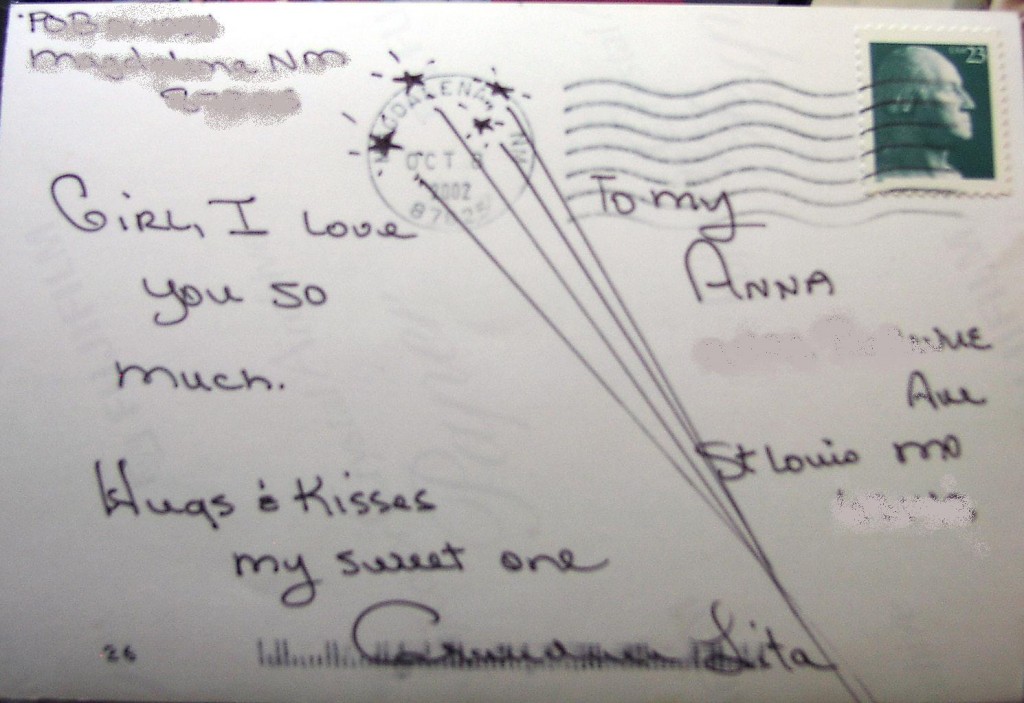 POB
Magdalena NM
MAGDALENA, NM
OCT
2002
USA 23
Girl, I love
you so
much.
Hugs & Kisses
my sweet one
Lita
To my
Anna
Ave
St Louis MO
26